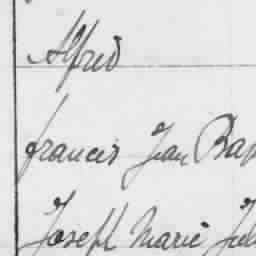 Alfred
francis Jean Bap
Joseph Marie Jul